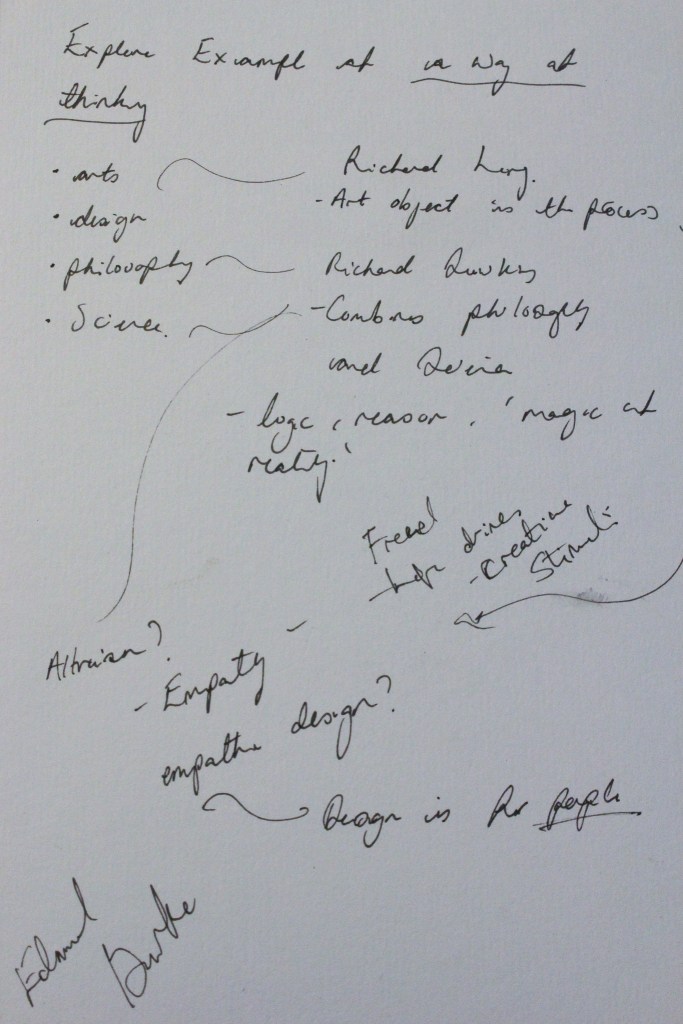 Explore Exampl of a way of
thinking
• arts
Richard Long.
- Art object is the process
• design
• philosophy
Richard Dawkins
• Science.
- Combines philosophy
and Science
- logic, reason, 'magic of
reality.'
Freud
- drives
- creative
Stimuli
Altruism?
- Empaty -
empathic design?
Design is for people
Edmund
Burke